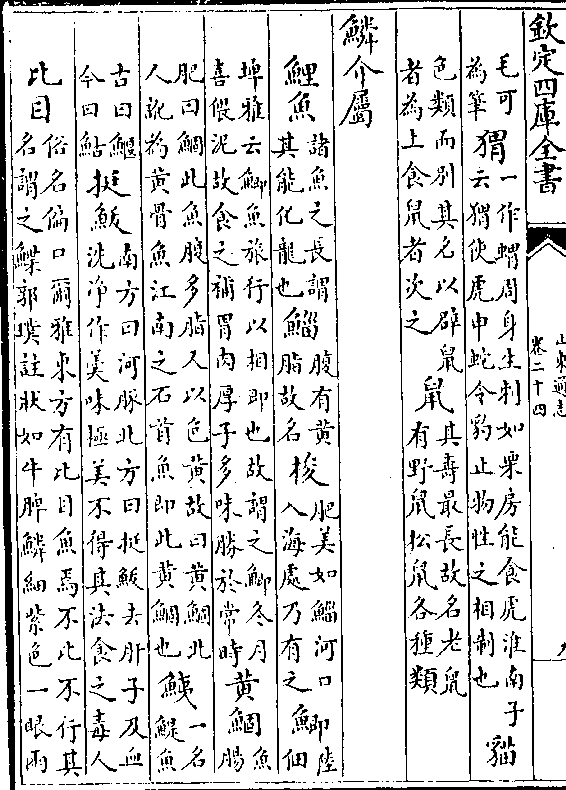 欽定四庫全書
山東通志
卷二十四
毛可
為筆
猬
一作蝟周身生刺如栗房能食虎淮南子
云猬使虎申蛇令豹止物性之相制也
貓
色類而別其名以辟鼠
者為上食鼠者次之
鼠
其壽最長故名老鼠
有野鼠松鼠各種類
鱗介屬
鯉魚
諸魚之長謂
其能化龍也
鯔
腹有黃
脂故名
梭
肥美如鯔河口
入海處乃有之
鯽
陸
佃
埤雅云鯽魚旅行以相即也故謂之鯽冬月
喜偎泥故食之補胃肉厚子多味勝於常時
黃鯝
魚
腸
肥曰鯝此魚腹多脂又以色黃故曰黃鯝北
人訛為黃骨魚江南之石首魚即此黃鯝也
鮧
一名
鯷魚
古曰鰋
今曰鮎
挺鮁
南方曰河豚北方曰挺鮁去肝子及血
洗净作羮味極美不得其法食之毒人
比目
俗名偏口爾雅東方有比目魚焉不比不行其
名謂之鰈郭璞註狀如牛脾鱗細紫色一眼兩